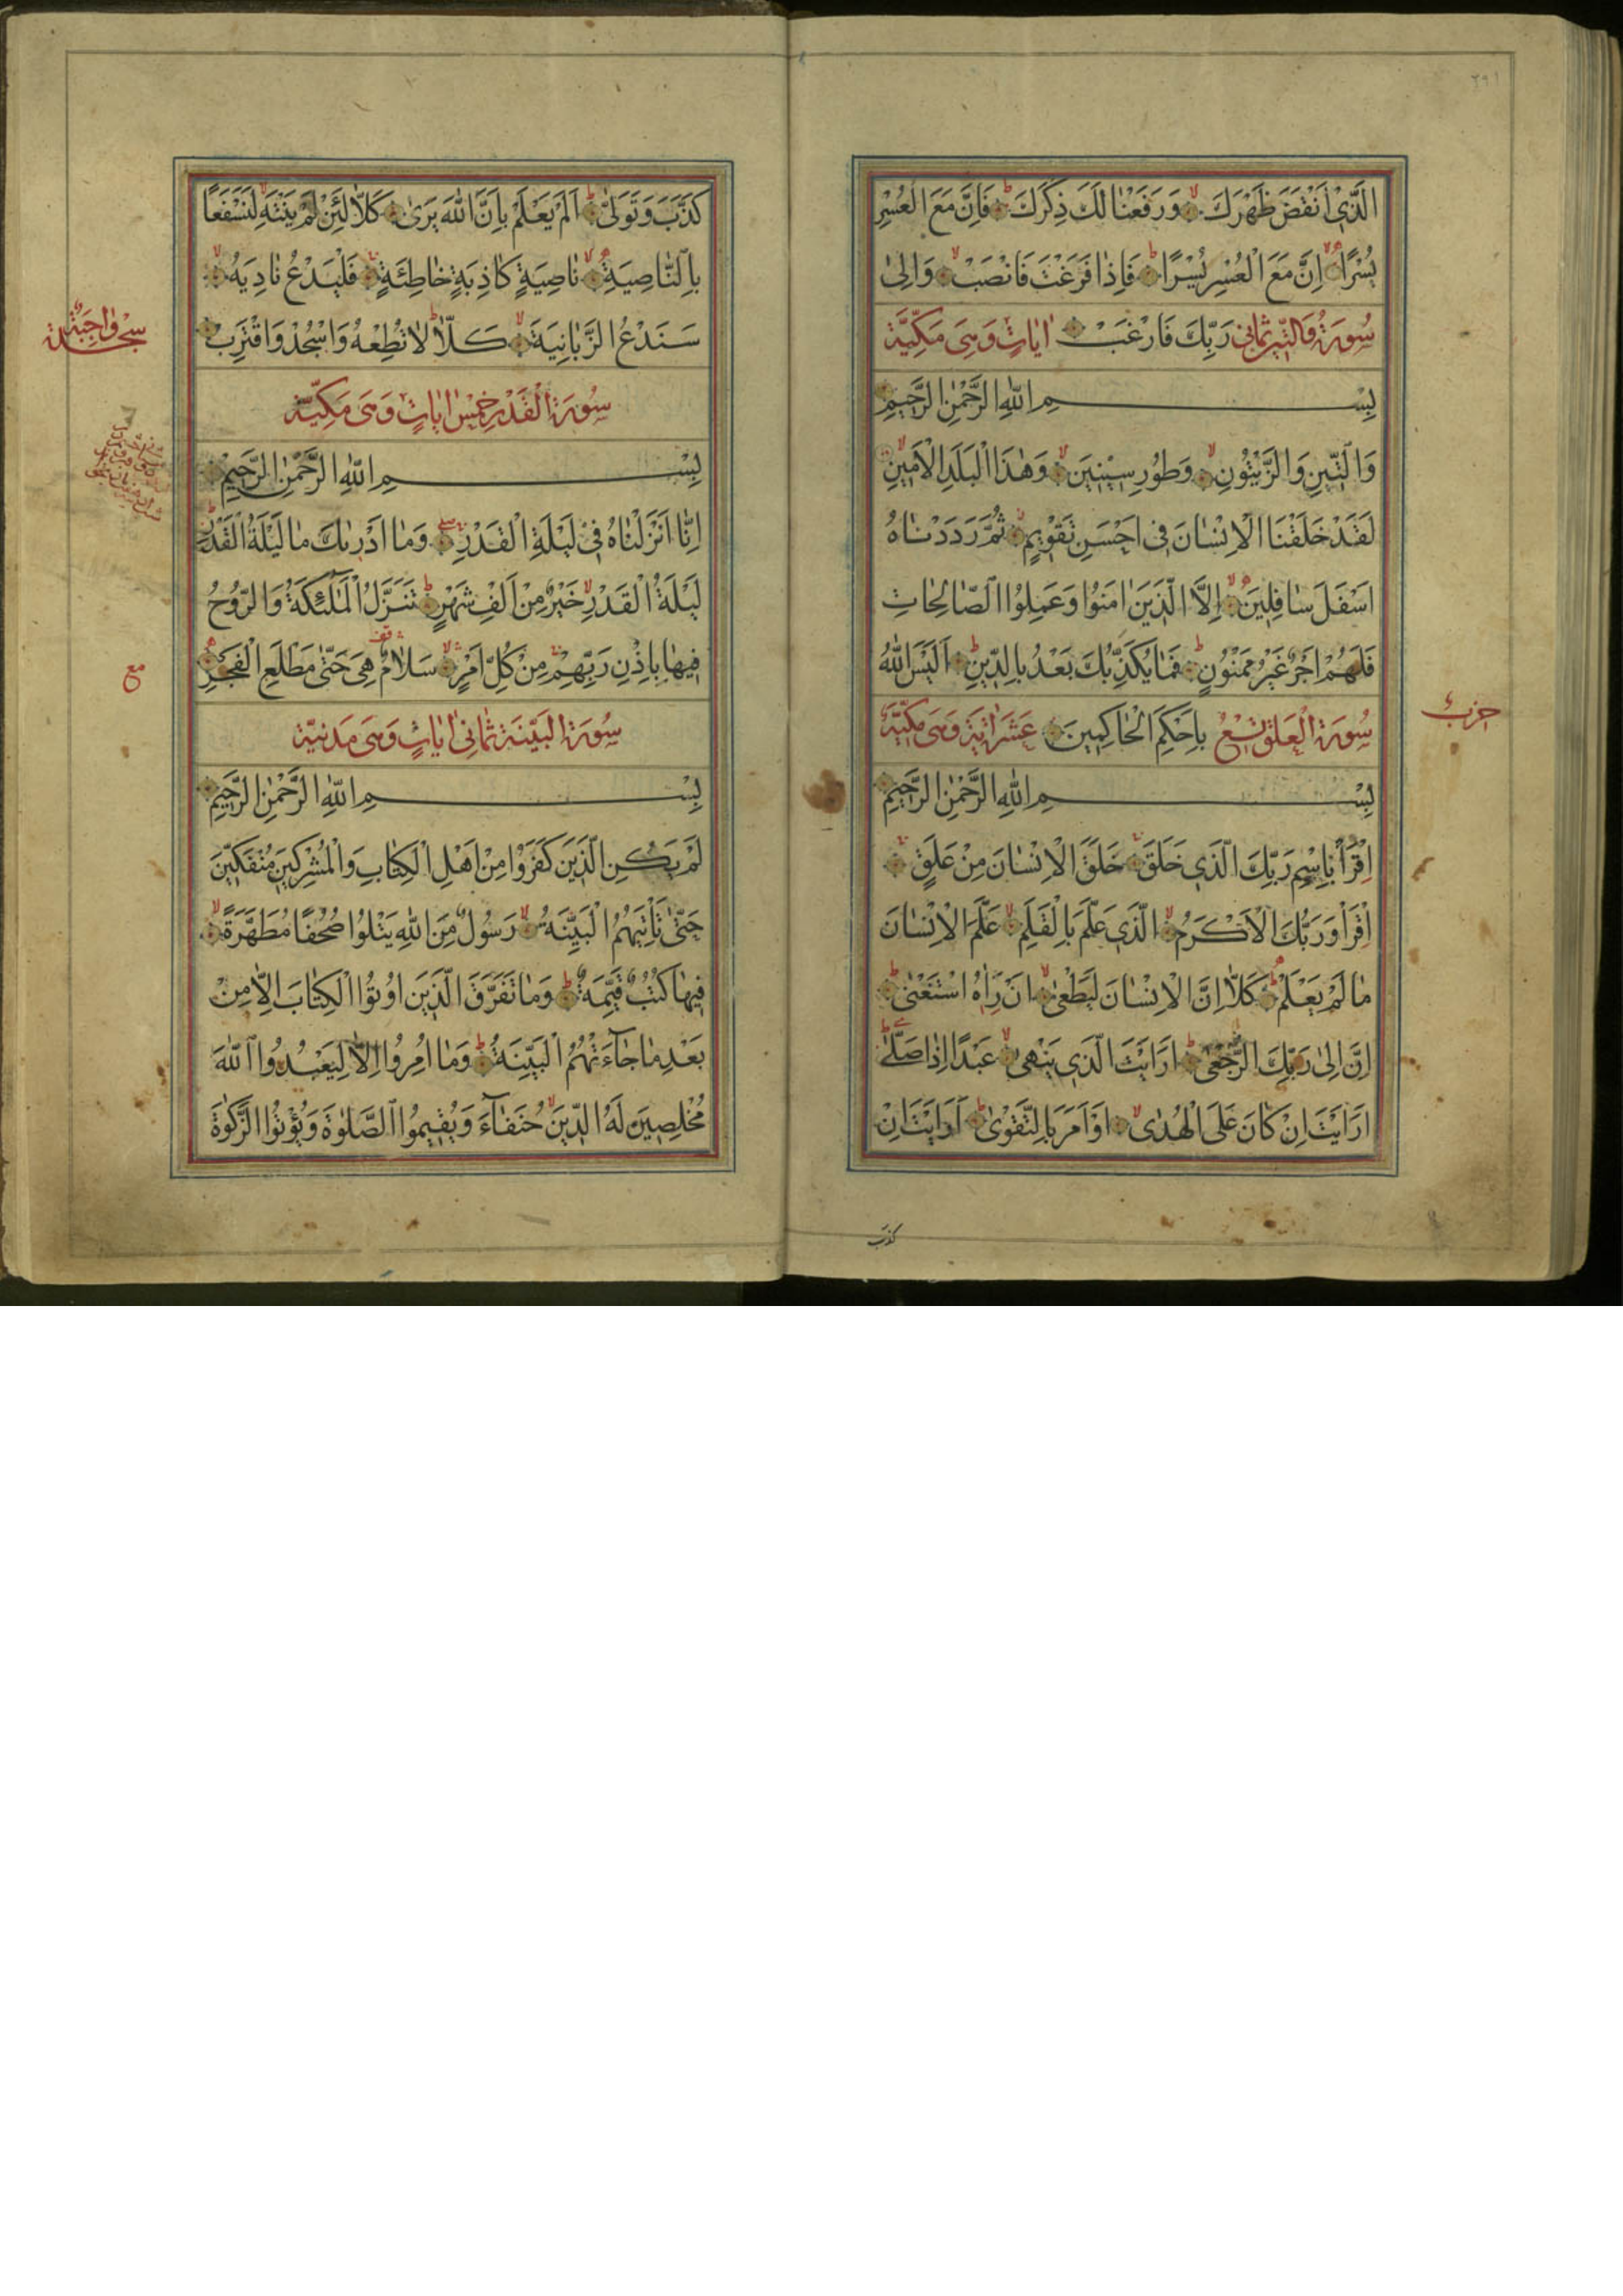 ٢٩١
الَّذِي أَنْقَضَ ظَهْرَكَ وَرَفَعْنَا لَكَ ذِكْرَكَ فَاِنَّ مَعَ الْعُسْرِ
يُسْرًا اِنَّ مَعَ الْعُسْرِ يُسْرًا فَاِذَا فَرَغْتَ فَانْصَبْ وَاِلىٰ
سُورَةُ وَالتِّينِ ثَمَانِي رَبِّكَ فَارْغَبْ اٰيَاتٍ وَهِيَ مَكِّيَّة
بِسْمِ اللّٰهِ الرَّحْمٰنِ الرَّحِيمِ
وَالتِّينِ وَالزَّيْتُونِ وَطُورِ سِينِينَ وَهٰذَا الْبَلَدِ الْاَمِينِ
لَقَدْ خَلَقْنَا الْاِنْسَانَ فِي اَحْسَنِ تَقْوِيمٍ ثُمَّ رَدَدْنَاهُ
اَسْفَلَ سَافِلِينَ اِلَّا الَّذِينَ اٰمَنُوا وَعَمِلُوا الصَّالِحَاتِ
فَلَهُمْ اَجْرٌ غَيْرُ مَمْنُونٍ فَمَا يُكَذِّبُكَ بَعْدُ بِالدِّينِ اَلَيْسَ اللّٰهُ
سُورَةُ الْعَلَقِ تِسْعُ بِاَحْكَمِ الْحَاكِمِينَ عَشَرَ اٰيَة وَهِيَ مَكِّيَّة
حزب
بِسْمِ اللّٰهِ الرَّحْمٰنِ الرَّحِيمِ
اِقْرَأْ بِاسْمِ رَبِّكَ الَّذِي خَلَقَ خَلَقَ الْاِنْسَانَ مِنْ عَلَقٍ
اِقْرَأْ وَرَبُّكَ الْاَكْرَمُ الَّذِي عَلَّمَ بِالْقَلَمِ عَلَّمَ الْاِنْسَانَ
مَا لَمْ يَعْلَمْ كَلَّا اِنَّ الْاِنْسَانَ لَيَطْغىٰ اَنْ رَاٰهُ اسْتَغْنىٰ
اِنَّ اِلىٰ رَبِّكَ الرُّجْعىٰ اَرَاَيْتَ الَّذِي يَنْهىٰ عَبْدًا اِذَا صَلّىٰ
اَرَاَيْتَ اِنْ كَانَ عَلَى الْهُدىٰ اَوْ اَمَرَ بِالتَّقْوىٰ اَرَاَيْتَ اِنْ
كذب
كَذَّبَ وَتَوَلّىٰ اَلَمْ يَعْلَمْ بِاَنَّ اللّٰهَ يَرىٰ كَلَّا لَئِنْ لَمْ يَنْتَهِ لَنَسْفَعًا
بِالنَّاصِيَةِ نَاصِيَةٍ كَاذِبَةٍ خَاطِئَةٍ فَلْيَدْعُ نَادِيَهُ
سَنَدْعُ الزَّبَانِيَةَ كَلَّا لَا تُطِعْهُ وَاسْجُدْ وَاقْتَرِبْ
سجدة واجبة
سُورَةُ الْقَدْرِ خَمْسُ اٰيَاتٍ وَهِيَ مَكِّيَّة
بِسْمِ اللّٰهِ الرَّحْمٰنِ الرَّحِيمِ
اِنَّا اَنْزَلْنَاهُ فِي لَيْلَةِ الْقَدْرِ وَمَا اَدْرٰىكَ مَا لَيْلَةُ الْقَدْرِ
لَيْلَةُ الْقَدْرِ خَيْرٌ مِنْ اَلْفِ شَهْرٍ تَنَزَّلُ الْمَلٰئِكَةُ وَالرُّوحُ
فِيهَا بِاِذْنِ رَبِّهِمْ مِنْ كُلِّ اَمْرٍ سَلَامٌ هِيَ حَتّىٰ مَطْلَعِ الْفَجْرِ
مع
سُورَةُ الْبَيِّنَة ثَمَانِي اٰيَاتٍ وَهِيَ مَدَنِيَّة
بِسْمِ اللّٰهِ الرَّحْمٰنِ الرَّحِيمِ
لَمْ يَكُنِ الَّذِينَ كَفَرُوا مِنْ اَهْلِ الْكِتَابِ وَالْمُشْرِكِينَ مُنْفَكِّينَ
حَتّىٰ تَأْتِيَهُمُ الْبَيِّنَةُ رَسُولٌ مِنَ اللّٰهِ يَتْلُوا صُحُفًا مُطَهَّرَةً
فِيهَا كُتُبٌ قَيِّمَةٌ وَمَا تَفَرَّقَ الَّذِينَ اُوتُوا الْكِتَابَ اِلَّا مِنْ
بَعْدِ مَا جَاءَتْهُمُ الْبَيِّنَةُ وَمَا اُمِرُوا اِلَّا لِيَعْبُدُوا اللّٰهَ
مُخْلِصِينَ لَهُ الدِّينَ حُنَفَاءَ وَيُقِيمُوا الصَّلٰوةَ وَيُؤْتُوا الزَّكٰوةَ